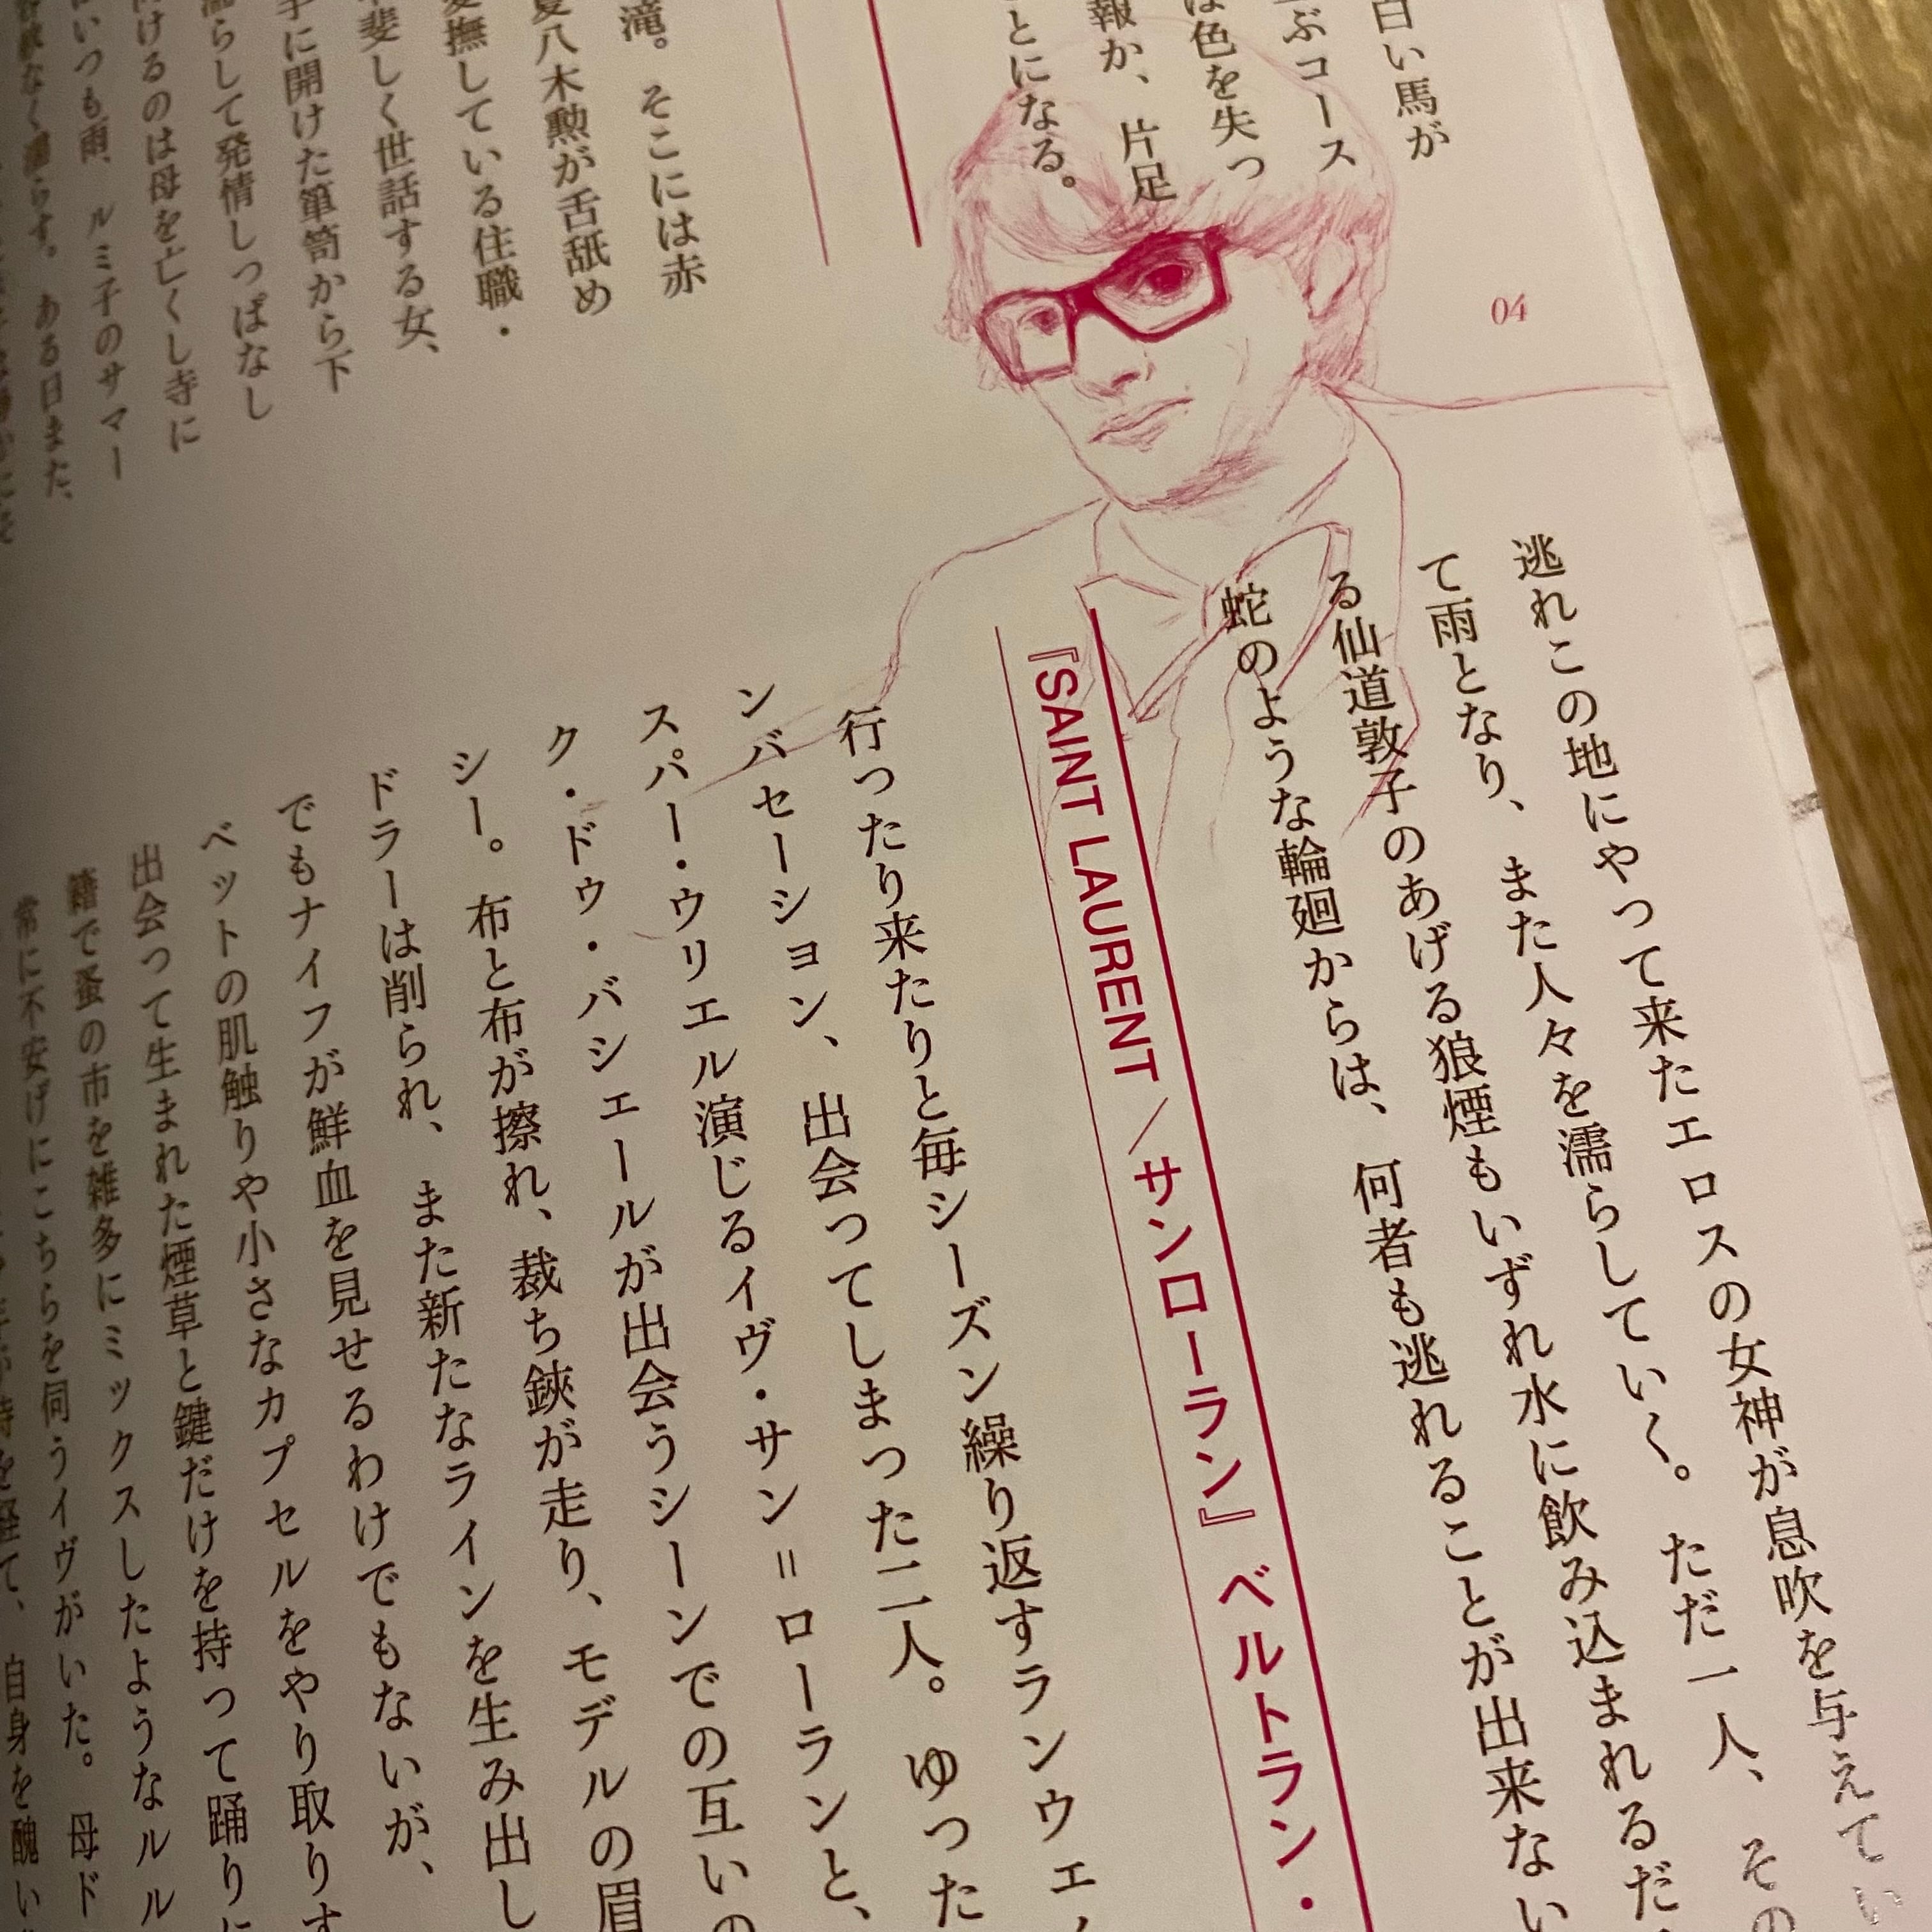 白い馬が
ぶコース
は色を失っ
報か、片足
とになる。
滝。そこには赤
夏八木勲が舌舐め
愛撫している住職・
斐しく世話する女、
手に開けた箪笥から下
濡らして発情しっぱなし
けるのは母を亡くし寺に
いつも雨、ルミ子のサマー
なく濡らす。ある日また、
04
逃れこの地にやって来たエロスの女神が息吹を与えてい
て雨となり、また人々を濡らしていく。ただ一人、その
る仙道敦子のあげる狼煙もいずれ水に飲み込まれるだ
蛇のような輪廻からは、何者も逃れることが出来ない
『SAINT LAURENT／サンローラン』ベルトラン・
行ったり来たりと毎シーズン繰り返すランウェ
ンバセーション、出会ってしまった二人。ゆった
スパー・ウリエル演じるイヴ・サン＝ローランと、
ク・ドゥ・バシェールが出会うシーンでの互いの
シー。布と布が擦れ、裁ち鋏が走り、モデルの眉
ドラーは削られ、また新たなラインを生み出し
でもナイフが鮮血を見せるわけでもないが、
ベットの肌触りや小さなカプセルをやり取りす
出会って生まれた煙草と鍵だけを持って踊りに
籍で蚤の市を雑多にミックスしたようなルル
常に不安げにこちらを伺うイヴがいた。母ド
を経て、自身を醜い